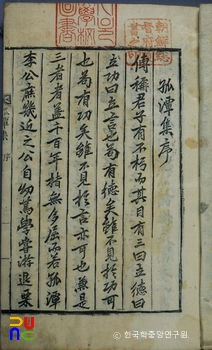 孤潭集序
傳稱君子有不朽而其目有三曰立德曰
立功曰立言苟有德矣雖不見於功可
也苟有功矣雖不見於言亦可也無是
三者者蓋千百年指無多屈而若孤潭
李公庶幾近之公自幼篤學嘗游退溪
한국학중앙연구원